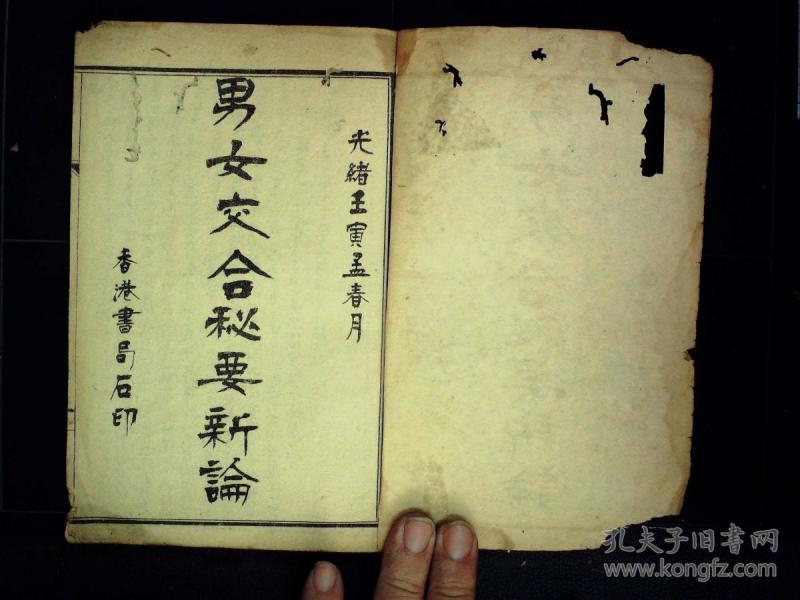 光緒壬寅孟春月
男女交合秘要新論
香港書局石印
孔夫子旧书网
www.kongfz.com